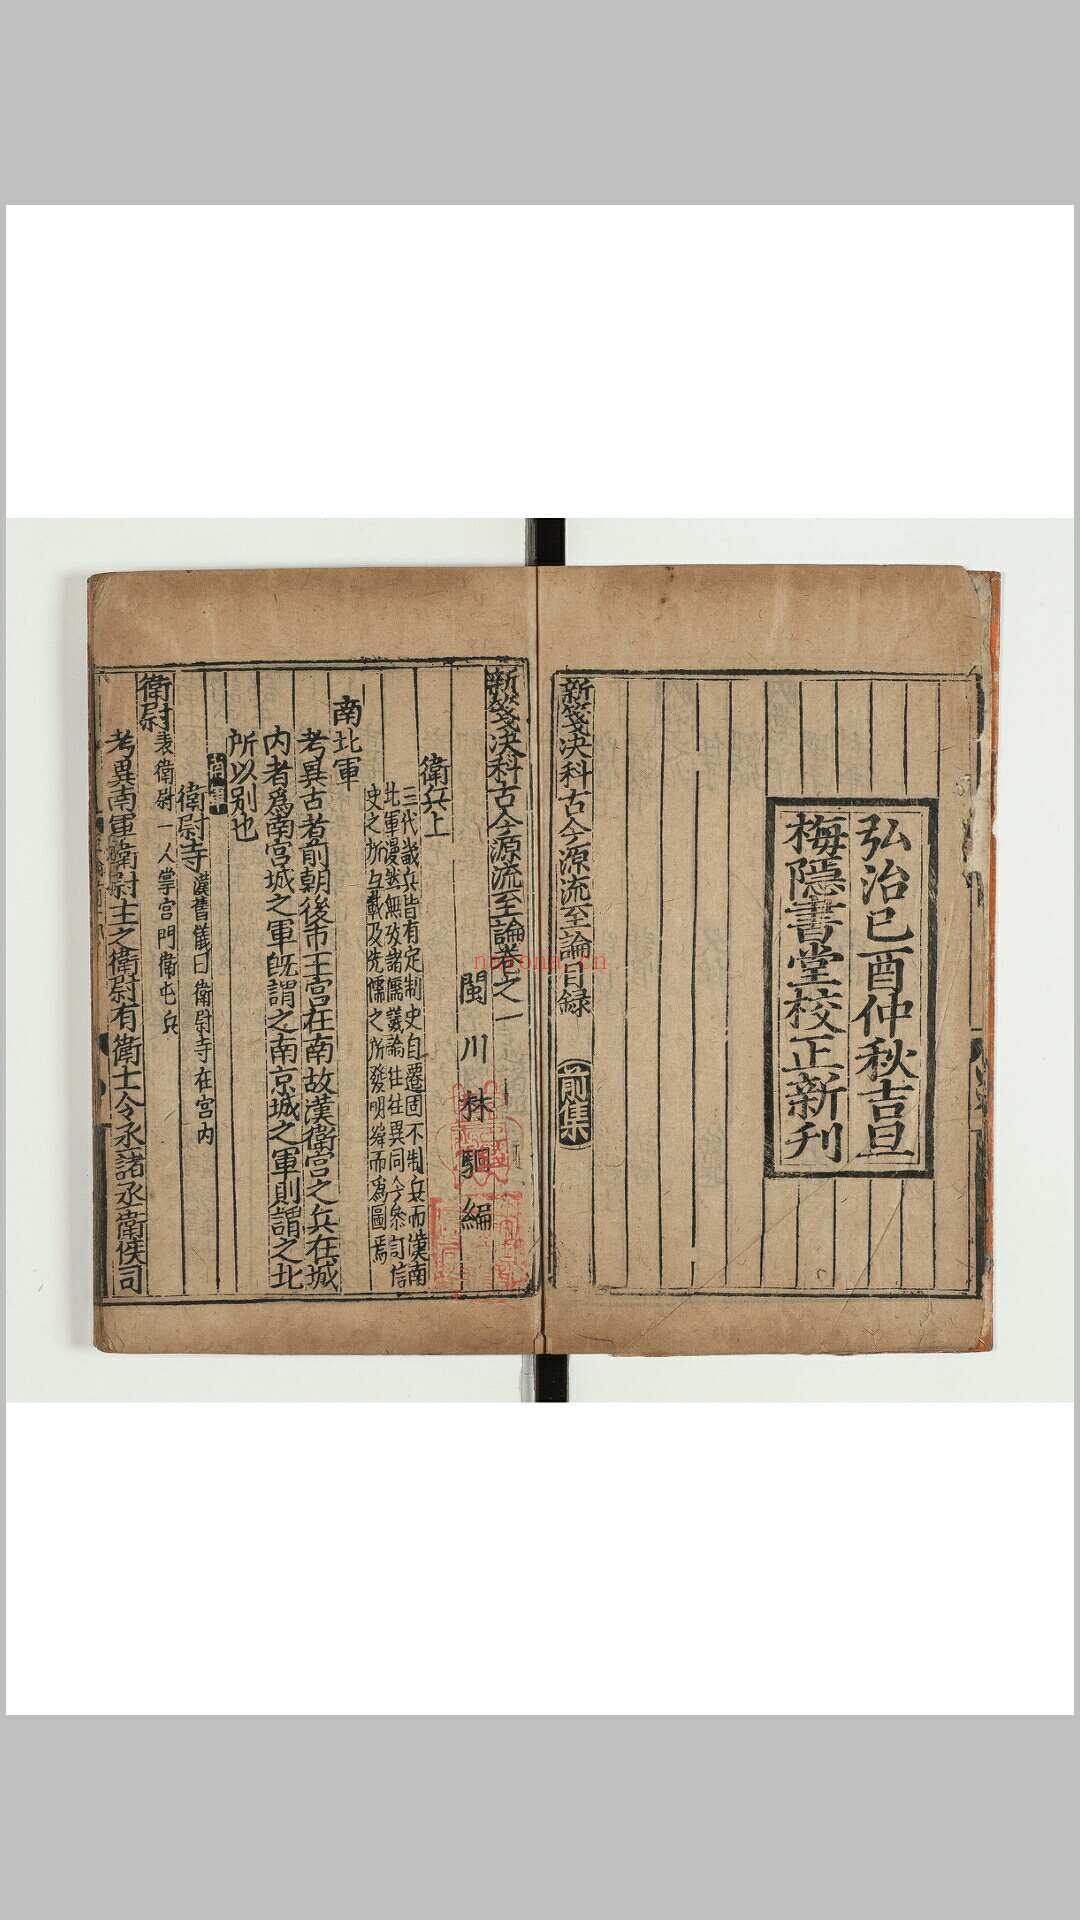 弘治己酉仲秋吉旦
梅隱書堂校正新刋
新箋决科古今源流至論目録 前集
新箋决科古今源流至論卷之一
閩川林駉編
衛兵上
三代嵗兵皆有定制史自遷固不制兵而漢南
北軍漫然無攷諸儒議論徃徃異同今叅訂信
史之所与載及先儒之所發明緝而為圖焉
南北軍
考異古者前朝後市王宫在南故漢衛宫之兵在城
内者爲南宫城之軍旣謂之南京城之軍則謂之北
所以别也
衛尉寺漢舊儀曰衛尉寺在宫内
衛尉表衛尉一人掌宫門衛屯兵
考異南軍衛尉主之衛尉有衛士令丞諸丞衛候司
nayona.cn